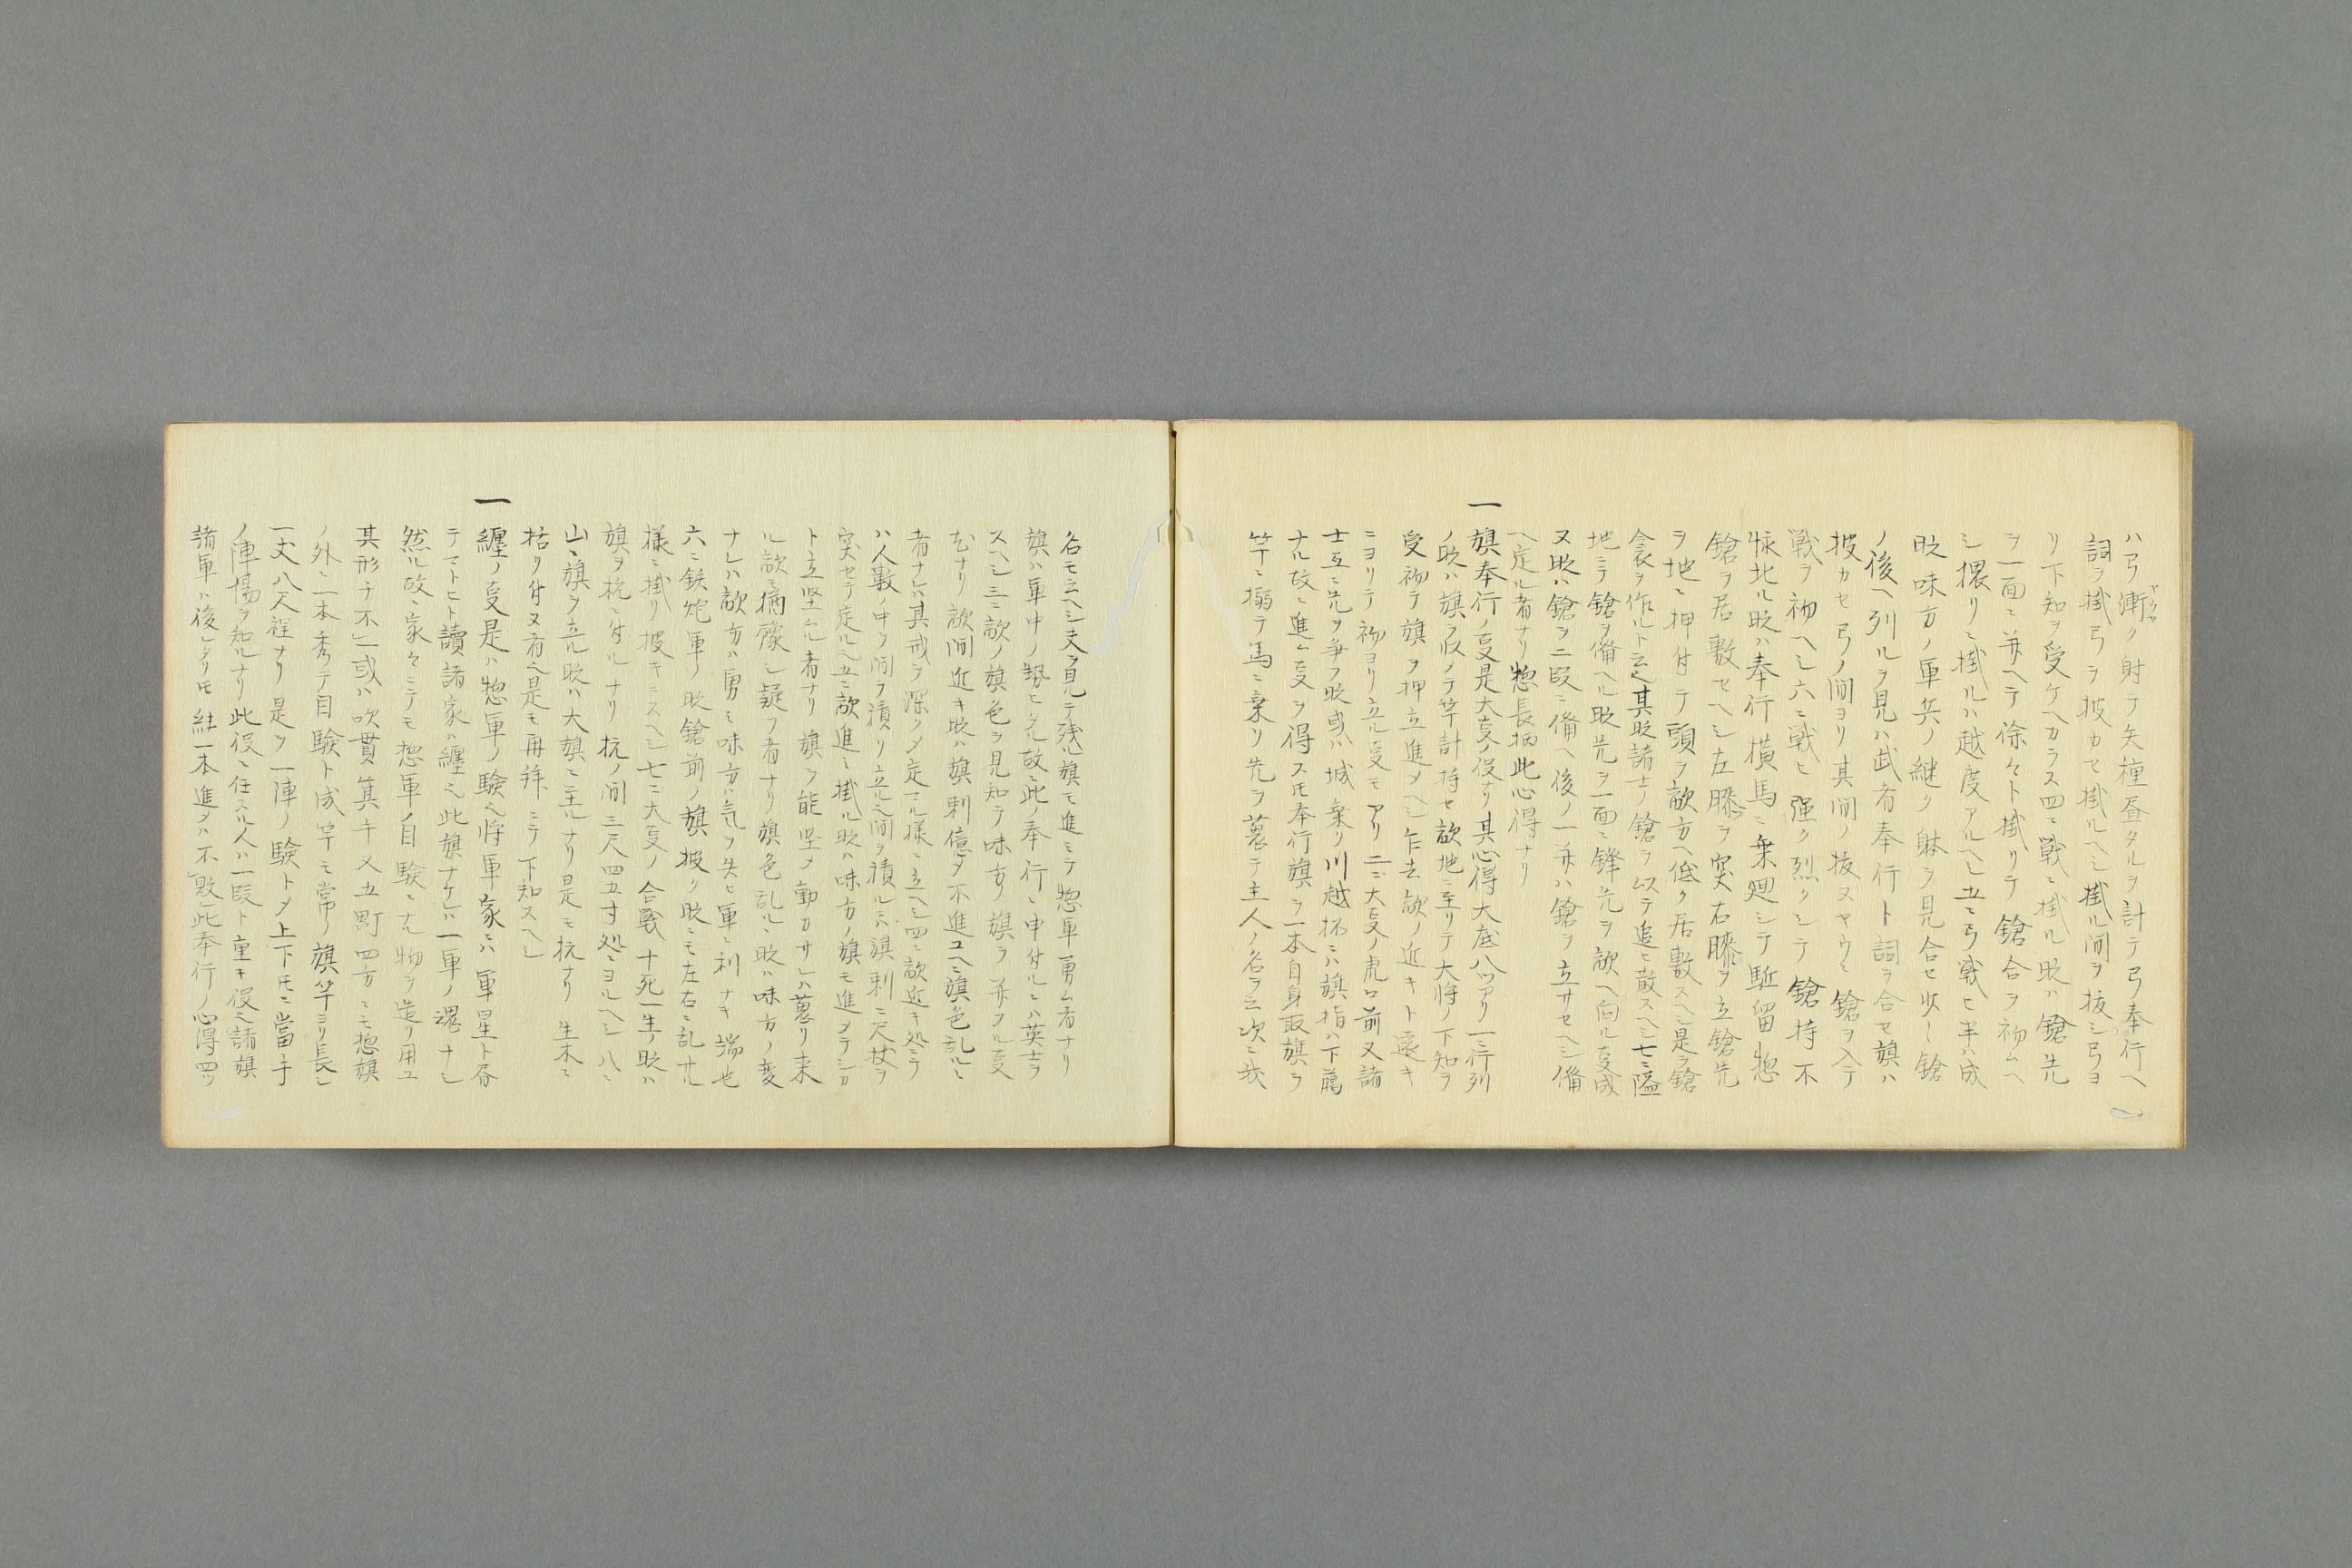 ハ弓漸ク射テ矢種昼タルヲ計テ弓奉行ヘ
詞ヲ掛弓ヲ披カセ掛ルヘシ掛ル間ヲ抜シ弓ヨ
リ下知ヲ受ケヘカラス四ニ戦ニ掛ル時ハ鎗先
ヲ一面ニ並ヘテ徐々ト掛リテ鎗合ヲ初ムヘ
シ猥リニ掛ルハ越度アルヘシ五ニ弓戦ヒ半ハ成
時味方ノ軍兵ノ継ク躰ヲ見合セ少シ鎗
ノ後ヘ列ルヲ見ハ武者奉行ト詞ヲ合セ旗ハ
披カセ弓ノ間ヨリ其間ノ抜ヌヤウニ鎗ヲ入テ
戦ヲ初ヘシ六ニ戦ヒ強ク烈クシテ鎗持不
怺北ル時ハ奉行横馬ニ乗廻シテ駈留惣
鎗ヲ居敷セヘシ左膝ヲ突右膝ヲ立鎗先
ヲ地ニ押付テ頭ヲ敵方ヘ低ク居敷スヘシ是ヲ鎗
衾ヲ作ルト云也其時諸士ノ鎗ヲ以テ追ヒ散スヘシ七ニ隘
地ニテ鎗ヲ備ヘル時先ヲ一面ニ鋒先ヲ敵ヘ向ル叓成
又時ハ鎗ヲ二段ニ備ヘ後ノ一並ハ鎗ヲ立サセヘシ備
ヘ定ル者ナリ惣長柄此心得ナリ
一旗奉行ノ叓是大叓ノ役ナリ其心得大底八ツアリ一ニ行列
ノ時ハ旗ヲ収メテ竿計持セ敵地ニ至リテ大将ノ下知ヲ
受初テ旗ヲ押立進メヘシ乍去敵ノ近キト遠キ
ニヨリテ初ヨリ立ル叓モアリ二ニ大叓ノ虎口前又諸
士互ニ先ヲ争フ時或ハ城乗リ川越抔ニハ旗指ハ下﨟
ナル故ニ進ム叓ヲ得スモ奉行旗ヲ一本自身取旗ヲ
竿ニ搦テ馬ニ乗リ先ヲ蒐テ主人ノ名ヲ云次ニ我
名モ云ヘシ夫ヲ見テ残旗モ進ミテ惣軍勇ム者ナリ
旗ハ軍中ノ勢ヒタル故ニ此ノ奉行ニ申付ルニハ英士ヲ
スヘシ三ニ敵ノ旗色ヲ見知テ味方ノ旗ヲ並フル叓
ナリ敵間近キ時ハ旗刺憶メ不進ユヘニ旗色乱ルヽ
者ナレハ其戒ヲ深クメ定マル様ニ立ヘシ四ニ敵近キ処ニテ
ハ人数ノ中ヲ間ヲ積リ立ルニ間ヲ積ルニハ旗刺ニ尺杖ヲ
突セテ定ルヘ五ニ敵進ミ掛ル時ハ味方ノ旗モ進メテシカ
ト立堅ムル者ナリ旗ヲ能堅メ動カサレハ蒐リ来
ル敵猶豫シ疑フ者ナリ旗色乱ルヽ時ハ味方ノ変
ナレハ敵方ハ勇ミ味方ハ気ヲ失ヒ軍ニ利ナキ端也
六ニ鉄炮軍ノ時鎗前ノ旗披ク時ニモ左右ニ乱サル
様ニ掛リ披キニスヘシ七ニ大叓ノ合戦十死一生ノ時ハ
旗ヲ杭ニ付ルナリ杭ノ間三尺四五寸処ニヨルヘシ八ニ
山ニ旗ヲ立ル時ハ大旗ニ至ルナリ是モ杭ナリ生木ニ
括リ付又有ヘ是モ再拜ニテ下知スヘシ
一纏ノ叓是ハ惣軍ノ驗也将軍家ニハ軍星ト唇
テマトヒト讀諸家ハ纏也此旗ナケレハ一軍ノ魂ナシ
然ル故ニ家々ニテモ惣軍ノ目驗ニナル物ヲ造リ用ユ
其形チ不一或ハ吹貫其キ又五町四方ニモ惣旗
ノ外ニ一本秀テ目驗ト成竿モ常ノ旗竿ヨリ長シ
一丈八尺程ナリ是ヲ一陣ノ驗トメ上下モニ當手
ノ陣場ヲ知ルナリ此役ニ任スル人ハ一段ト重キ役也諸旗
諸軍ハ後レタリモ纏一本進メハ不敗此奉行ノ心得四ツ